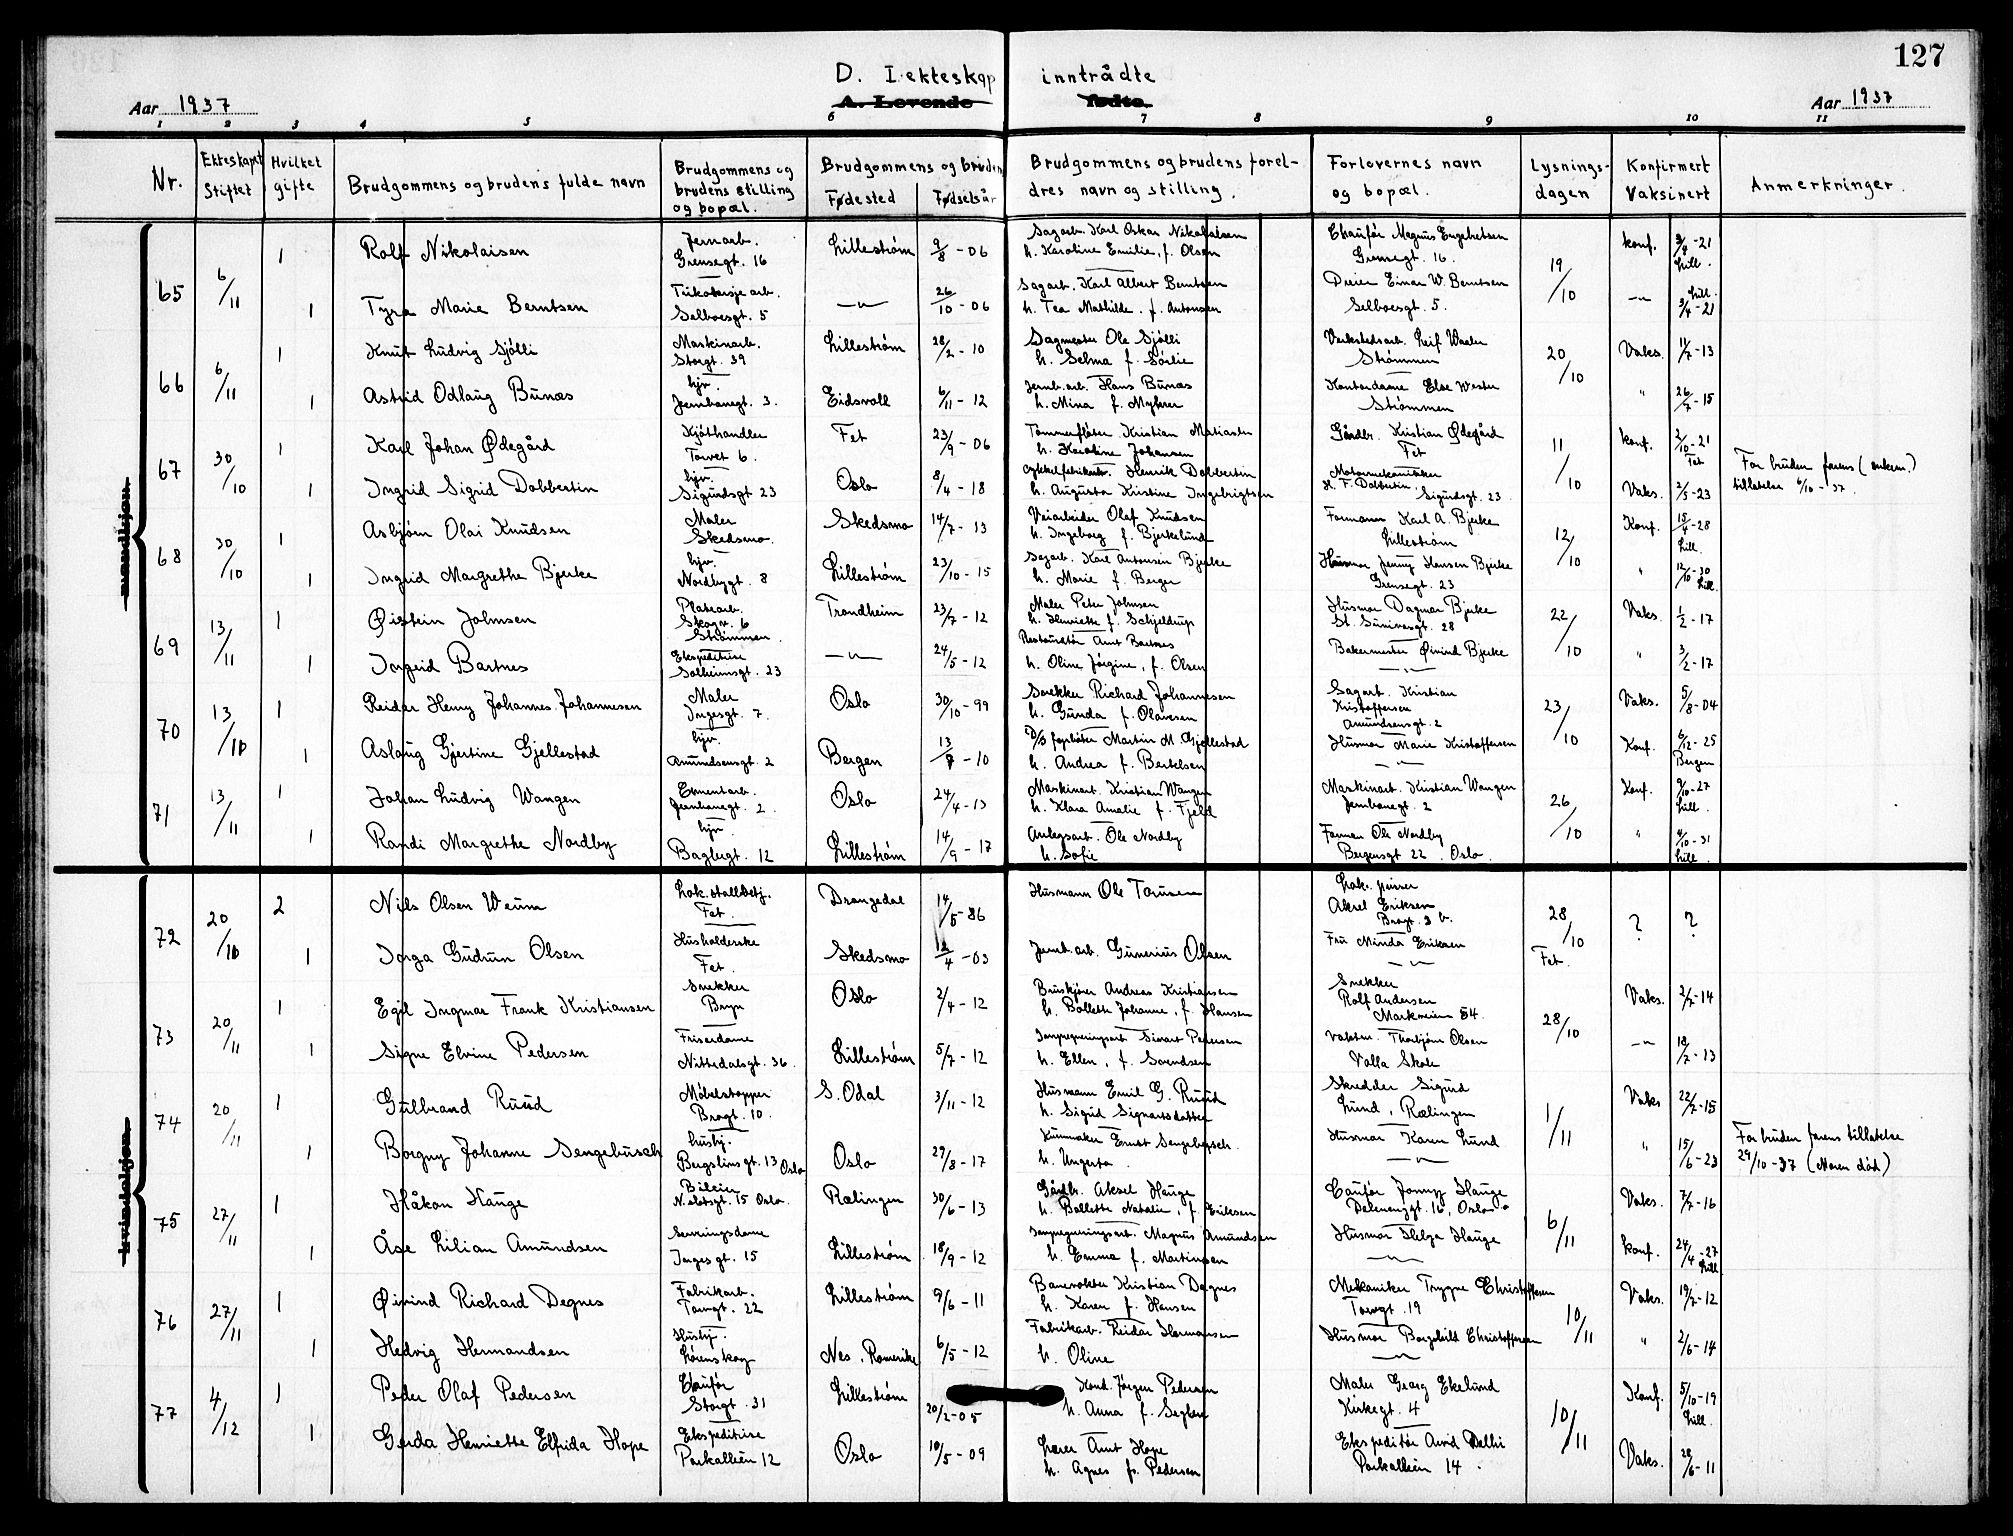 127
D. I ekteskap inntrådte
A. Levende fødte.
Aar 1937
Aar 1937
1 2 3 4 5 6 7 8 9 10 11
Nr. Ekteskapet Stiftet Hvilket gifte Brudgommens og brudens fulde navn Brudgommens og brudens stilling og bopæl. Brudgommens og brudens Fødested Fødselsår Brudgommens og brudens foreldres navn og stilling. Forlovernes navn og bopæl. Lysningsdagen Konfirmert Vaksinert Anmerkninger.
mandkjøn
65 6/11 1 Rolf Nikolaisen Jernarb. Grensegt. 16 Lillestrøm 9/8-06 Sagarb. Karl Oskar Nikolaisen h. Karoline Emilie, f. Olsen Chaufør Magnus Engebretsen Grensegt. 16. 19/10 konf. 3/4-21 Lill.
1 Tyra Marie Berntsen Trikotasje arb. Selboesgt. 5 —"— 26/10-06 Sagarb. Karl Albert Berntsen h. Tea Mathilde. f. Antonsen Dreier Einar W. Berntsen Selboesgt. 5. —"— Lill. 3/4-21
66 6/11 1 Knut Ludvig Sjølli Maskinarb. Storgt. 39 Lillestrøm 28/2-10 Sagmester Ole Sjølli h. Selma f. Sørlie Verkstedsarb. Leif Waaler Strømmen 20/10 Vaks. 11/7-13
1 Astrid Odlaug Bunæs hjv. Jernbanegt. 3. Eidsvoll 6/11-12 Jernb.arb. Hans Bunæs h. Mina f. Myhrer Kontordame Else Wester Strømmen " 26/7-15
67 30/10 1 Karl Johan Ødegård Kjøthandler Torvet 6. Fet 23/9-06 Tømmerfløter Kristian Matiasen h. Karoline Johansen Gårdbr. Kristian Ødegård Fet 11/10 konf. 2/10-21 Fet
1 Ingrid Sigrid Dobbertin hjv. Sigurdsgt 23 Oslo 8/4-18 Cykkelfabrikarb. Henrik Dobbertin h. Augusta Kristine Ingebrigtsen Motormekaniker H. F. Dobbertin Sigurdsgt. 23 Vaks. 2/5-23 For bruden farens (enkem.) tillatelse 6/10-37.
68 30/10 1 Asbjørn Olai Knudsen Maler Skedsmo. Skedsmo 14/7-13 Veiarbeider Olaf Knudsen h. Ingeborg f. Bjerkelund Formann Karl A. Bjerke Lillestrøm 12/10 Konf. 15/4-28 Lill.
1 Ingrid Margrethe Bjerke hjv. Nordbygt. 8 Lillestrøm 23/10-15 Sagarb. Karl Antonsen Bjerke h. Marie f. Berger Husmor Jenny Hansen Bjerke Grensegt. 23 " 12/10-30 Lill.
69 13/11 1 Øistein Johnsen Platearb. Skogv. 6 Strømmen. Trondheim 23/7-12 Maler Peter Johnsen h. Henriette f. Schjeldrup Husmor Dagmar Bjerke St. Sunivasgt. 28 22/10 Vaks. 1/2-17
1 Ingrid Bartnes Ekspeditrise Solheimsgt. 23 —"— 24/5-12 Restauratør Arnt Bartnes h. Oline Jørgine, f. Olsen Bakermester Øivind Bjerke —"— " 3/2-17
70 13/10 1 Reidar Henry Johannes Johannesen Maler Ingesgt. 7. Oslo 30/10-99 Snekker Richard Johannesen h. Gunda f. Olavesen Sagarb. Kristian Kristoffersen Amundsensgt. 2 23/10 Vaks. 5/8-04
1 Aslaug Gjertine Gjellestad hjv. Amundsensgt. 2 Bergen 13/7-10 Martin M. Gjellestad h. Andrea f. Bertelsen Husmor Marie Kristoffersen —"— Konf. 6/12-25 Bergen
71 13/11 1 Johan Ludvig Wangen Sementarb. Jernbanegt. 2. Oslo 24/4-13 Maskinarb. Kristian Wangen h. Klara Amalie f. Fjeld Maskinarb. Kristian Wangen Jernbanegt. 2 26/10 Konf. 9/10-27 Lill.
1 Randi Margrethe Nordby hjv. Baglergt. 12 Lillestrøm 14/9-17 Anlegsarb. Ole Nordby h. Sofie Forman Ole Nordby Bergensgt 22. Oslo. " 4/10-31 Lill.
kvindekjøn
72 20/10 2 Nils Olsen Weum Lok. stallbetj. Fet. Drangedal 14/5-86 Husmann Ole Torusen Lok. pusser Aksel Eriksen Bragt. 3 b. 28/10 Fet. ? ?
1 Inga Gudrun Olsen Husholderske Fet. Skedsmo 12/4-03 Jernb.arb. Gunerius Olsen Fru Minda Eriksen —"—
73 20/11 1 Egil Ingmar Frank Kristiansen Snekker Bryn Oslo 2/4-12 Bruskjører Andreas Kristiansen h. Bollette Johanne, f. Hansen Snekker Rolf Andersen Markveien 54. 28/10 Vaks. 2/7-14
1 Signe Elvine Pedersen Friserdame Nittedalsgt. 36. Lillestrøm 5/7-12 Impregneringsarb. Sivart Pedersen h. Ellen, f. Svendsen Vaktm. Thorbjørn Olsen Volla Skole —"— 18/7-13
74 20/11 1 Gulbrand Ruud Møbelstopper Bragt. 10. S. Odal 3/11-12 Husmann Emil G. Ruud h. Sigrid Signartsdatter Skredder Sigurd Lund, Rælingen 1/11 Vaks 22/7-15
1 Borgny Johanne Sengebusch husbj. Bergslinsgt. 13 Oslo Oslo 29/8-17 Ernst Sengebusch. h. Ungerta. Husmor Karen Lund —"— " 15/6-23 For bruden farens tillatelse 29/10-37 (Moren død)
75 27/11 1 Håkon Hauge Bileier N. slotsgt. 15 Oslo. Rælingen 30/6-13 Gårdbr. Aksel Hauge h. Bollette Natalie, f. Eriksen Caufør Jonny Hauge Delenenggt. 16, Oslo 6/11 Vaks. 7/7-16
1 Åse Lilian Amundsen Serveringsdame Ingesgt. 15 Lillestrøm 18/9-12 Impregneringsarb. Magnus Amundsen h. Emma f. Martinsen Husmor Helga Hauge —"— konf. 24/4-27 Lill
76 27/11 1 Øivind Richard Degnes Fabrikarb. Torvgt. 22 Lillestrøm 9/6-11 Banevokter Kristian Degnes h. Karen f. Hansen Mekaniker Trygve Christoffersen Torvgt. 19 10/11 Vaks. 19/7-12
1 Hedvig Hermandsen Husbj. Lørenskog Nes, Romerike 6/5-12 Fabrikarb. Reidar Hermansen h. Oline Husmor Borghild Christoffersen —"— " 2/6-14
77 4/12 1 Peder Olaf Pedersen Caufør Storgt. 31 Lillestrøm 20/2-05 Kond. Jørgen Pedersen h. Anna f. Seglen Maler Georg Ekelund Kirkegt. 4 10/11 Konf. 5/10-19 Lill.
1 Gerda Henriette Elfrida Hope Ekspeditrise Parkalleen 12 Oslo 10/5-09 Lærer Arnt Hope h. Agnes f. Pedersen Ekspeditør Arvid Melli Parkalleen 14. Vaks. 28/6-11